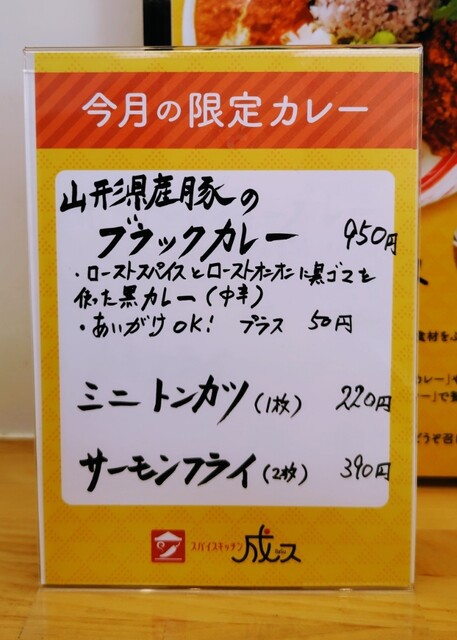 今月の限定カレー
山形県産豚の
ブラックカレー 950円
・ローストスパイスとローストオニオンに黒ゴマを
使った黒カレー（中辛）
・あいがけOK! プラス 50円
ミニトンカツ（1枚） 220円
サーモンフライ（2枚） 390円
スパイスキッチン 成ース
食材をふ
カレー」や
ー」で贅
どうぞ召し